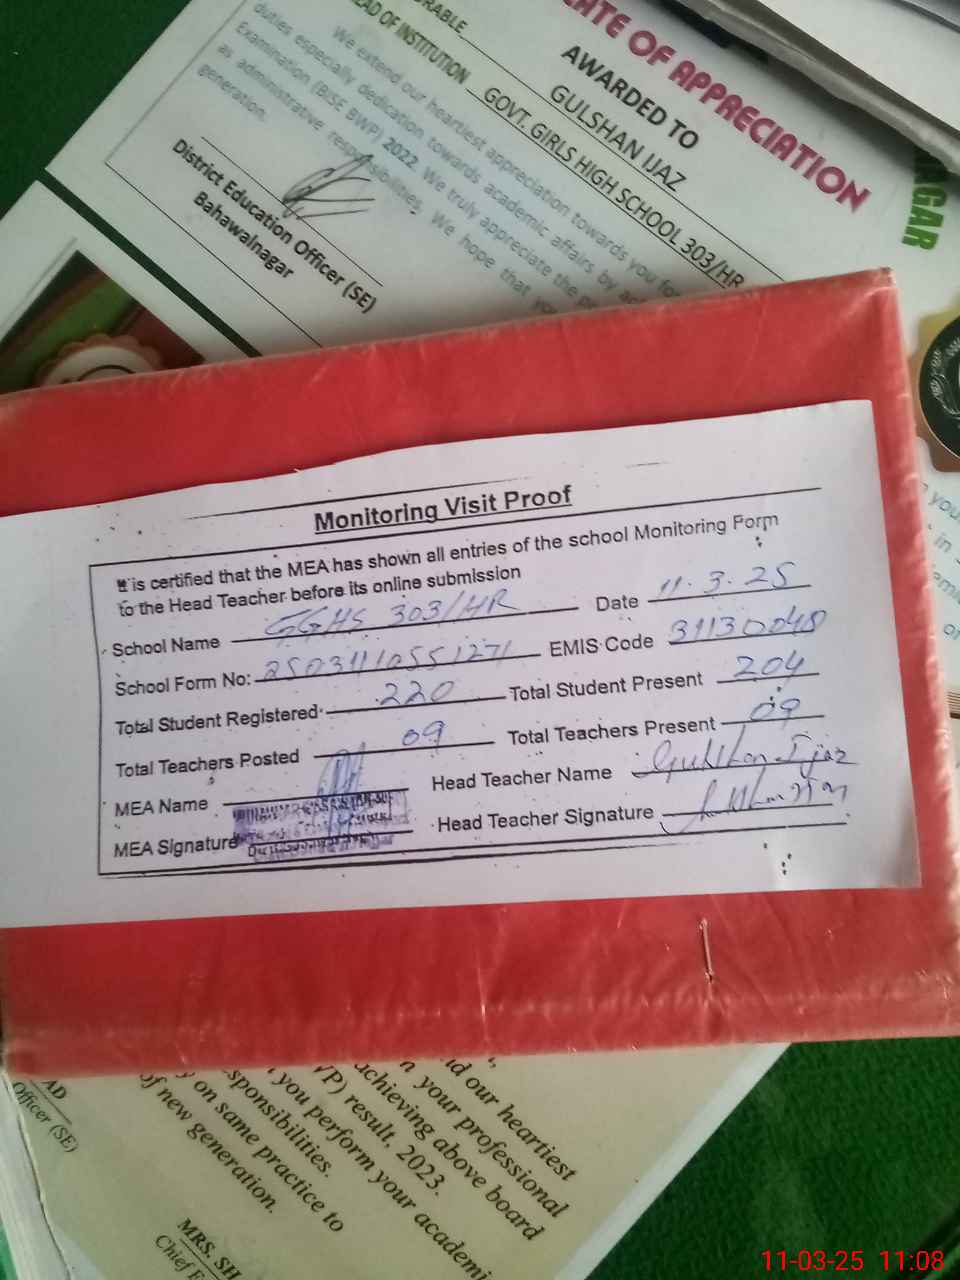 ORABLE
CATE OF APPRECIATION
AWARDED TO
GULSHAN IJAZ
HEAD OF INSTITUTION GOVT. GIRLS HIGH SCHOOL 303/HR
We extend our heartiest appreciation towards you for
duties especially dedication towards academic affairs by
Examination (BISE BWP) 2022. We truly appreciate the
as administrative responsibilities. We hope that you
generation.
District Education Officer (SE)
Bahawalnagar
AGAR
Monitoring Visit Proof
It is certified that the MEA has shown all entries of the school Monitoring Form
to the Head Teacher before its online submission
School Name GGHS 303/HR Date 11.3.25
School Form No: 25031110551271 EMIS Code 31130048
Total Student Registered 220 Total Student Present 204
Total Teachers Posted 09 Total Teachers Present 09
MEA Name Head Teacher Name Gulshan Ijaz
MEA Signature Head Teacher Signature
nd our heartiest
n your professional
achieving above board
VP) result, 2023.
you perform your academi
sponsibilities.
y on same practice to
of new generation.
AD
Officer (SE)
MRS. SH
Chief E
11-03-25 11:08